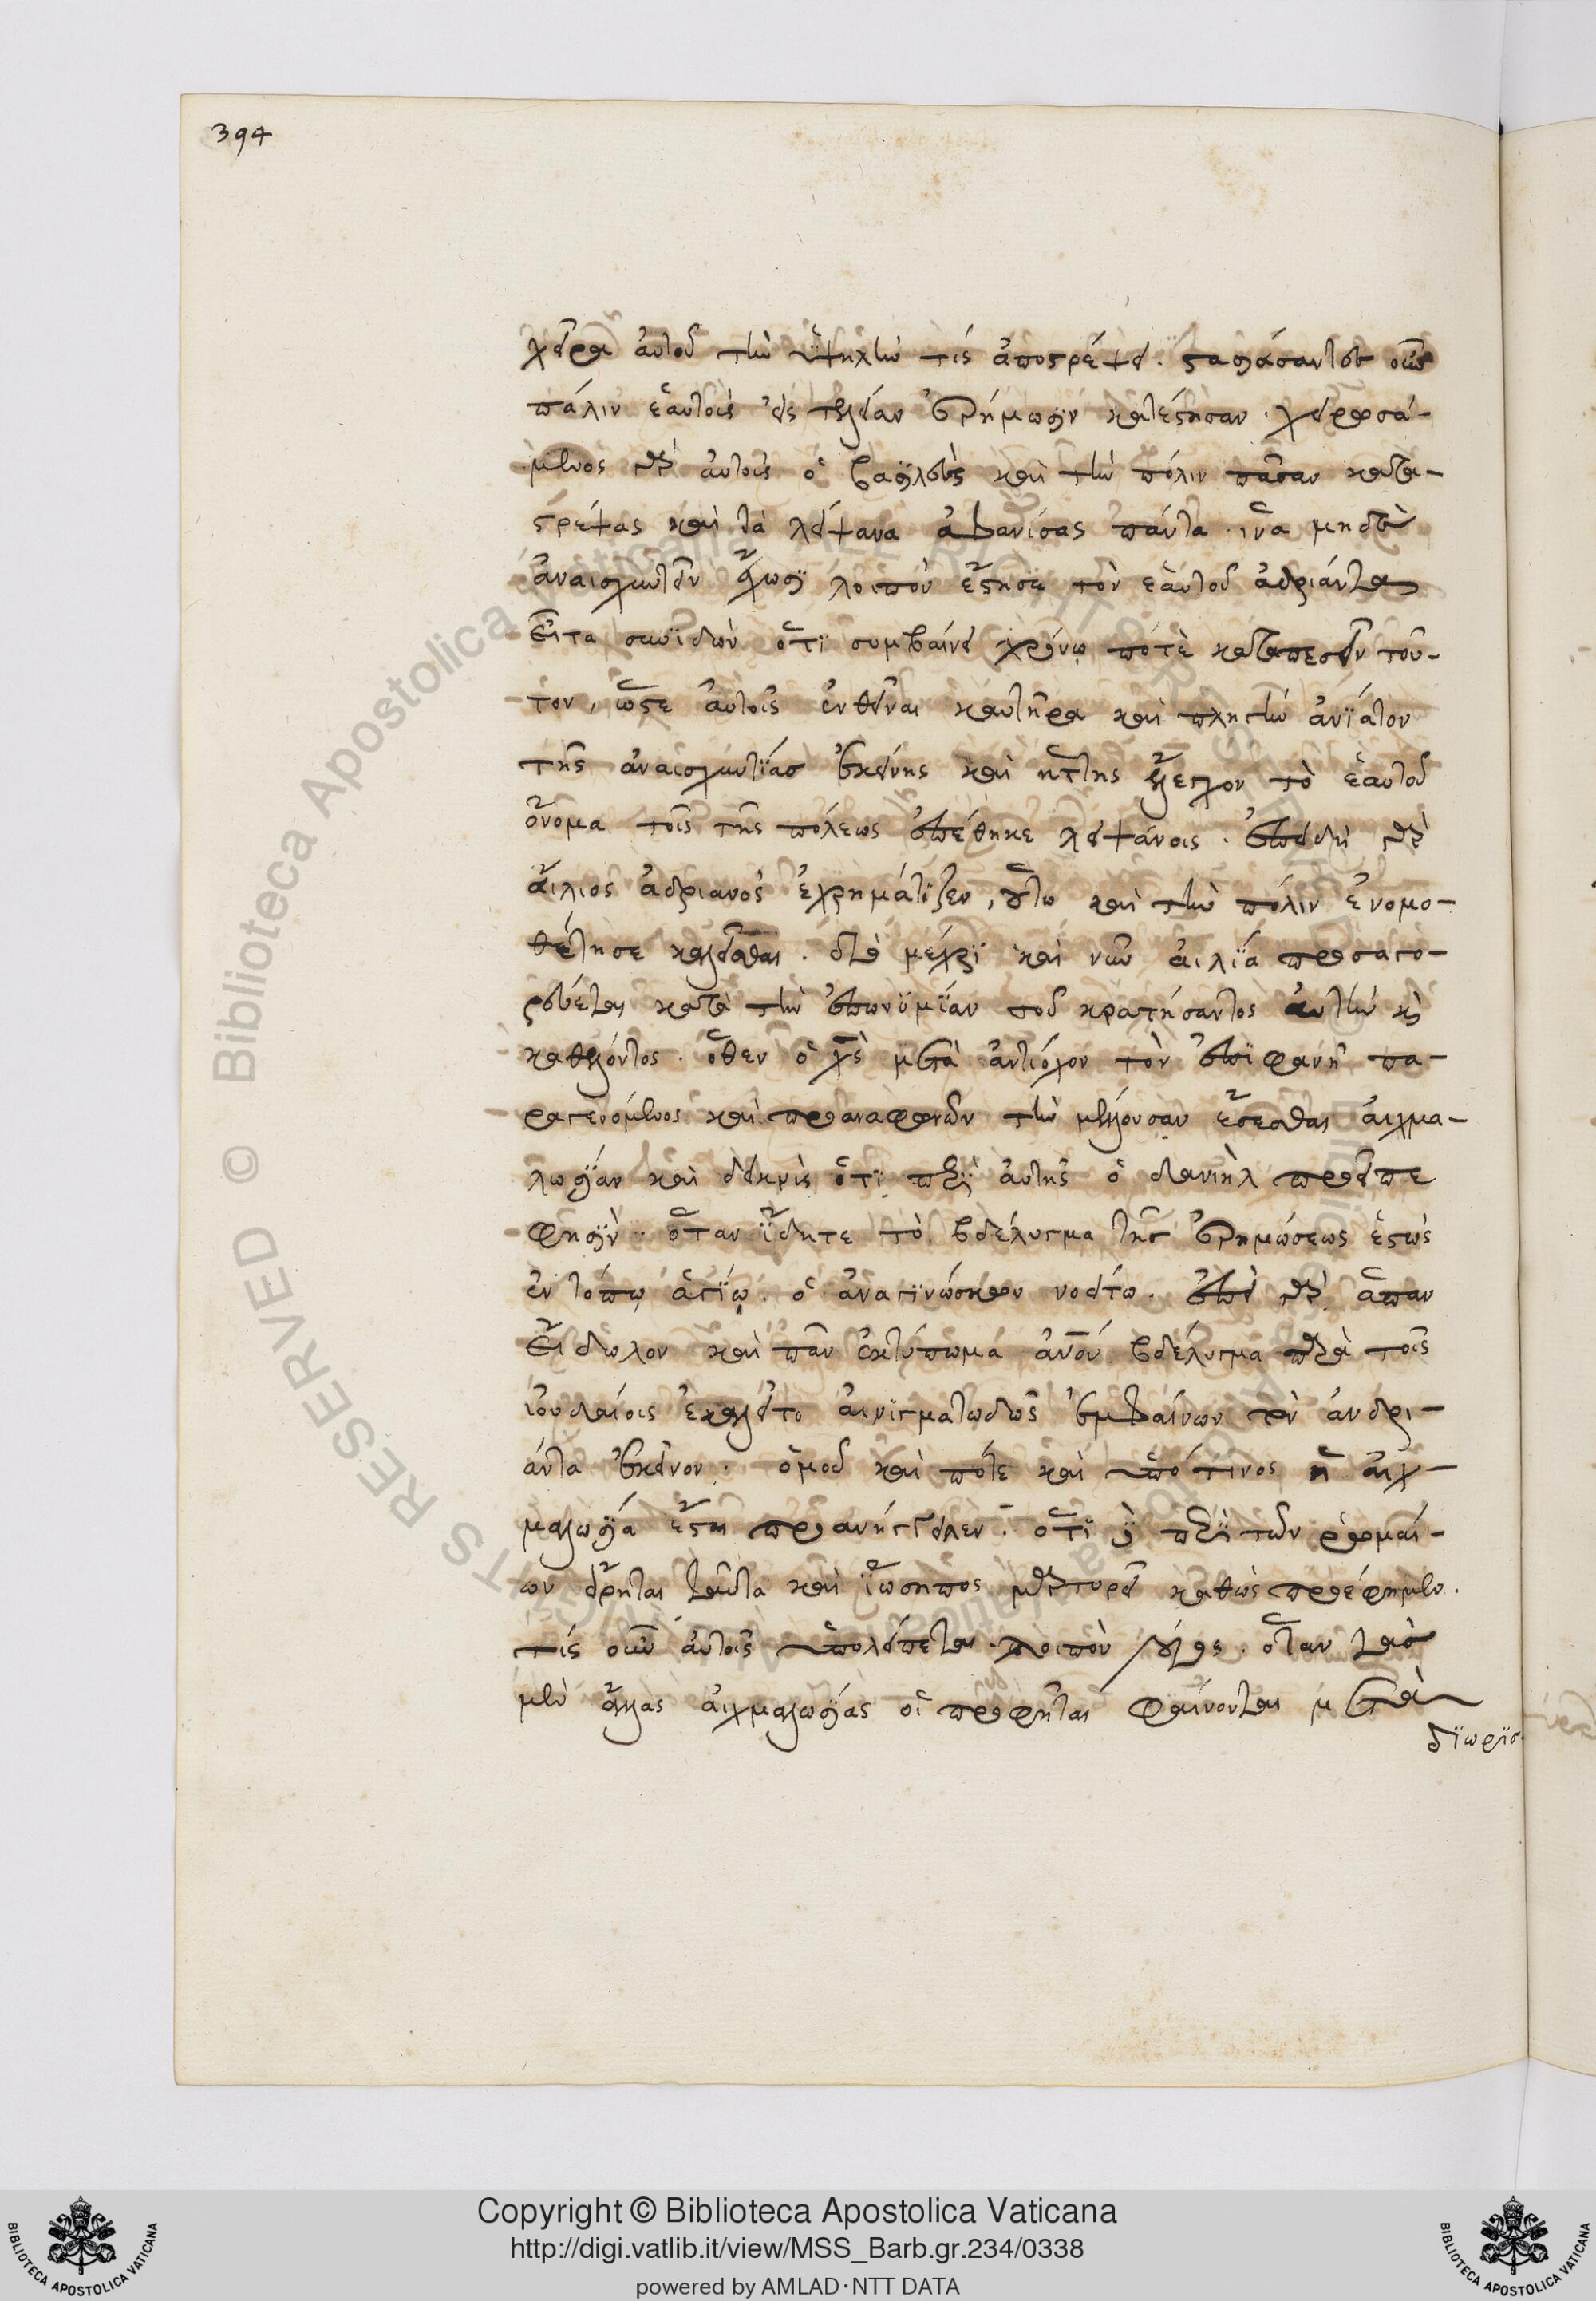 394
χεῖρα αὐτοῦ τὴν ὑψηλὴν τίς ἀποστρέψει. στασιάσαντες οὖν
πάλιν ἑαυτοὺς εἰς τελείαν ἐρήμωσιν κατέστησαν. χειρωσά-
μενος γὰρ αὐτοὺς ὁ βασιλεὺς καὶ τὴν πόλιν πᾶσαν κατα-
στρέψας καὶ τὰ λείψανα ἀφανίσας πάντα. ἵνα μηδὲ
ἀναισχυντεῖν ἔχωσι λοιπὸν ἔστησε τὸν ἑαυτοῦ ἀδριάντα
Εἶτα συνϊδὼν ὅτι συμβαίνει χρόνῳ ποτὲ καταπεσεῖν τοῦ-
τον, ὥστε αὐτοῖς ἐνθεῖναι καυτῆρα καὶ πληγὴν ἀνΐατον
τῆς ἀναισχυντίας ἐκείνης καὶ ἥττης ἔλεγχον τὸ ἑαυτοῦ
ὄνομα τοῖς τῆς πόλεως ἐπέθηκε λειψάνοις. ἐπειδὴ γὰρ
αἴλιος ἀδριανὸς ἐχρημάτιζεν, οὕτω καὶ τὴν πόλιν ἐνομο-
θέτησε καλεῖσθαι. διὸ μέχρι καὶ νῦν αἰλία προσαγο-
ρεύεται κατὰ τὴν ἐπωνυμίαν τοῦ κρατήσαντος αὐτὴν καὶ
καθελόντος. ὅθεν ὁ χς μετὰ ἀντίοχον τὸν ἐπιφανῆ πα-
ραγενόμενος καὶ προαναφωνῶν τὴν μέλλουσαν ἔσεσθαι αἰχμα-
λωσίαν καὶ δεικνὺς ὅτι περὶ αὐτῆς ὁ δανιὴλ προεῖπε
φησὶν. ὅταν ἴδητε τὸ βδέλυγμα τῆς ἐρημώσεως ἑστὼς
ἐν τόπῳ ἁγίῳ. ὁ ἀναγινώσκων νοείτω. ἐπεὶ γὰρ ἅπαν
Εἴδωλον καὶ πᾶν ἐκτύπωμα ἀνου βδέλυγμα παρὰ τοῖς
ἰουδαίοις ἐκαλεῖτο αἰνιγματωδῶς ἐμφαίνων τὸν ἀνδρι-
άντα ἐκεῖνον. ὁμοῦ καὶ πότε καὶ ὑπό τινος ἡ αἰχ-
μαλωσία ἔσται προανήγγειλεν. ὅτι δὲ περὶ τῶν ῥωμαί-
ων εἴρηται ταῦτα καὶ ἰώσηπος μαρτυρεῖ καθὼς προέφημεν.
τίς οὖν αὐτοῖς ὑπολείπεται λοιπὸν λόγος. ὅταν τὰς
μὲν ἄλλας αἰχμαλωσίας οἱ προφῆται φαίνονται μετὰ
διωρισ
Copyright © Biblioteca Apostolica Vaticana
http://digi.vatlib.it/view/MSS_Barb.gr.234/0338
powered by AMLAD·NTT DATA